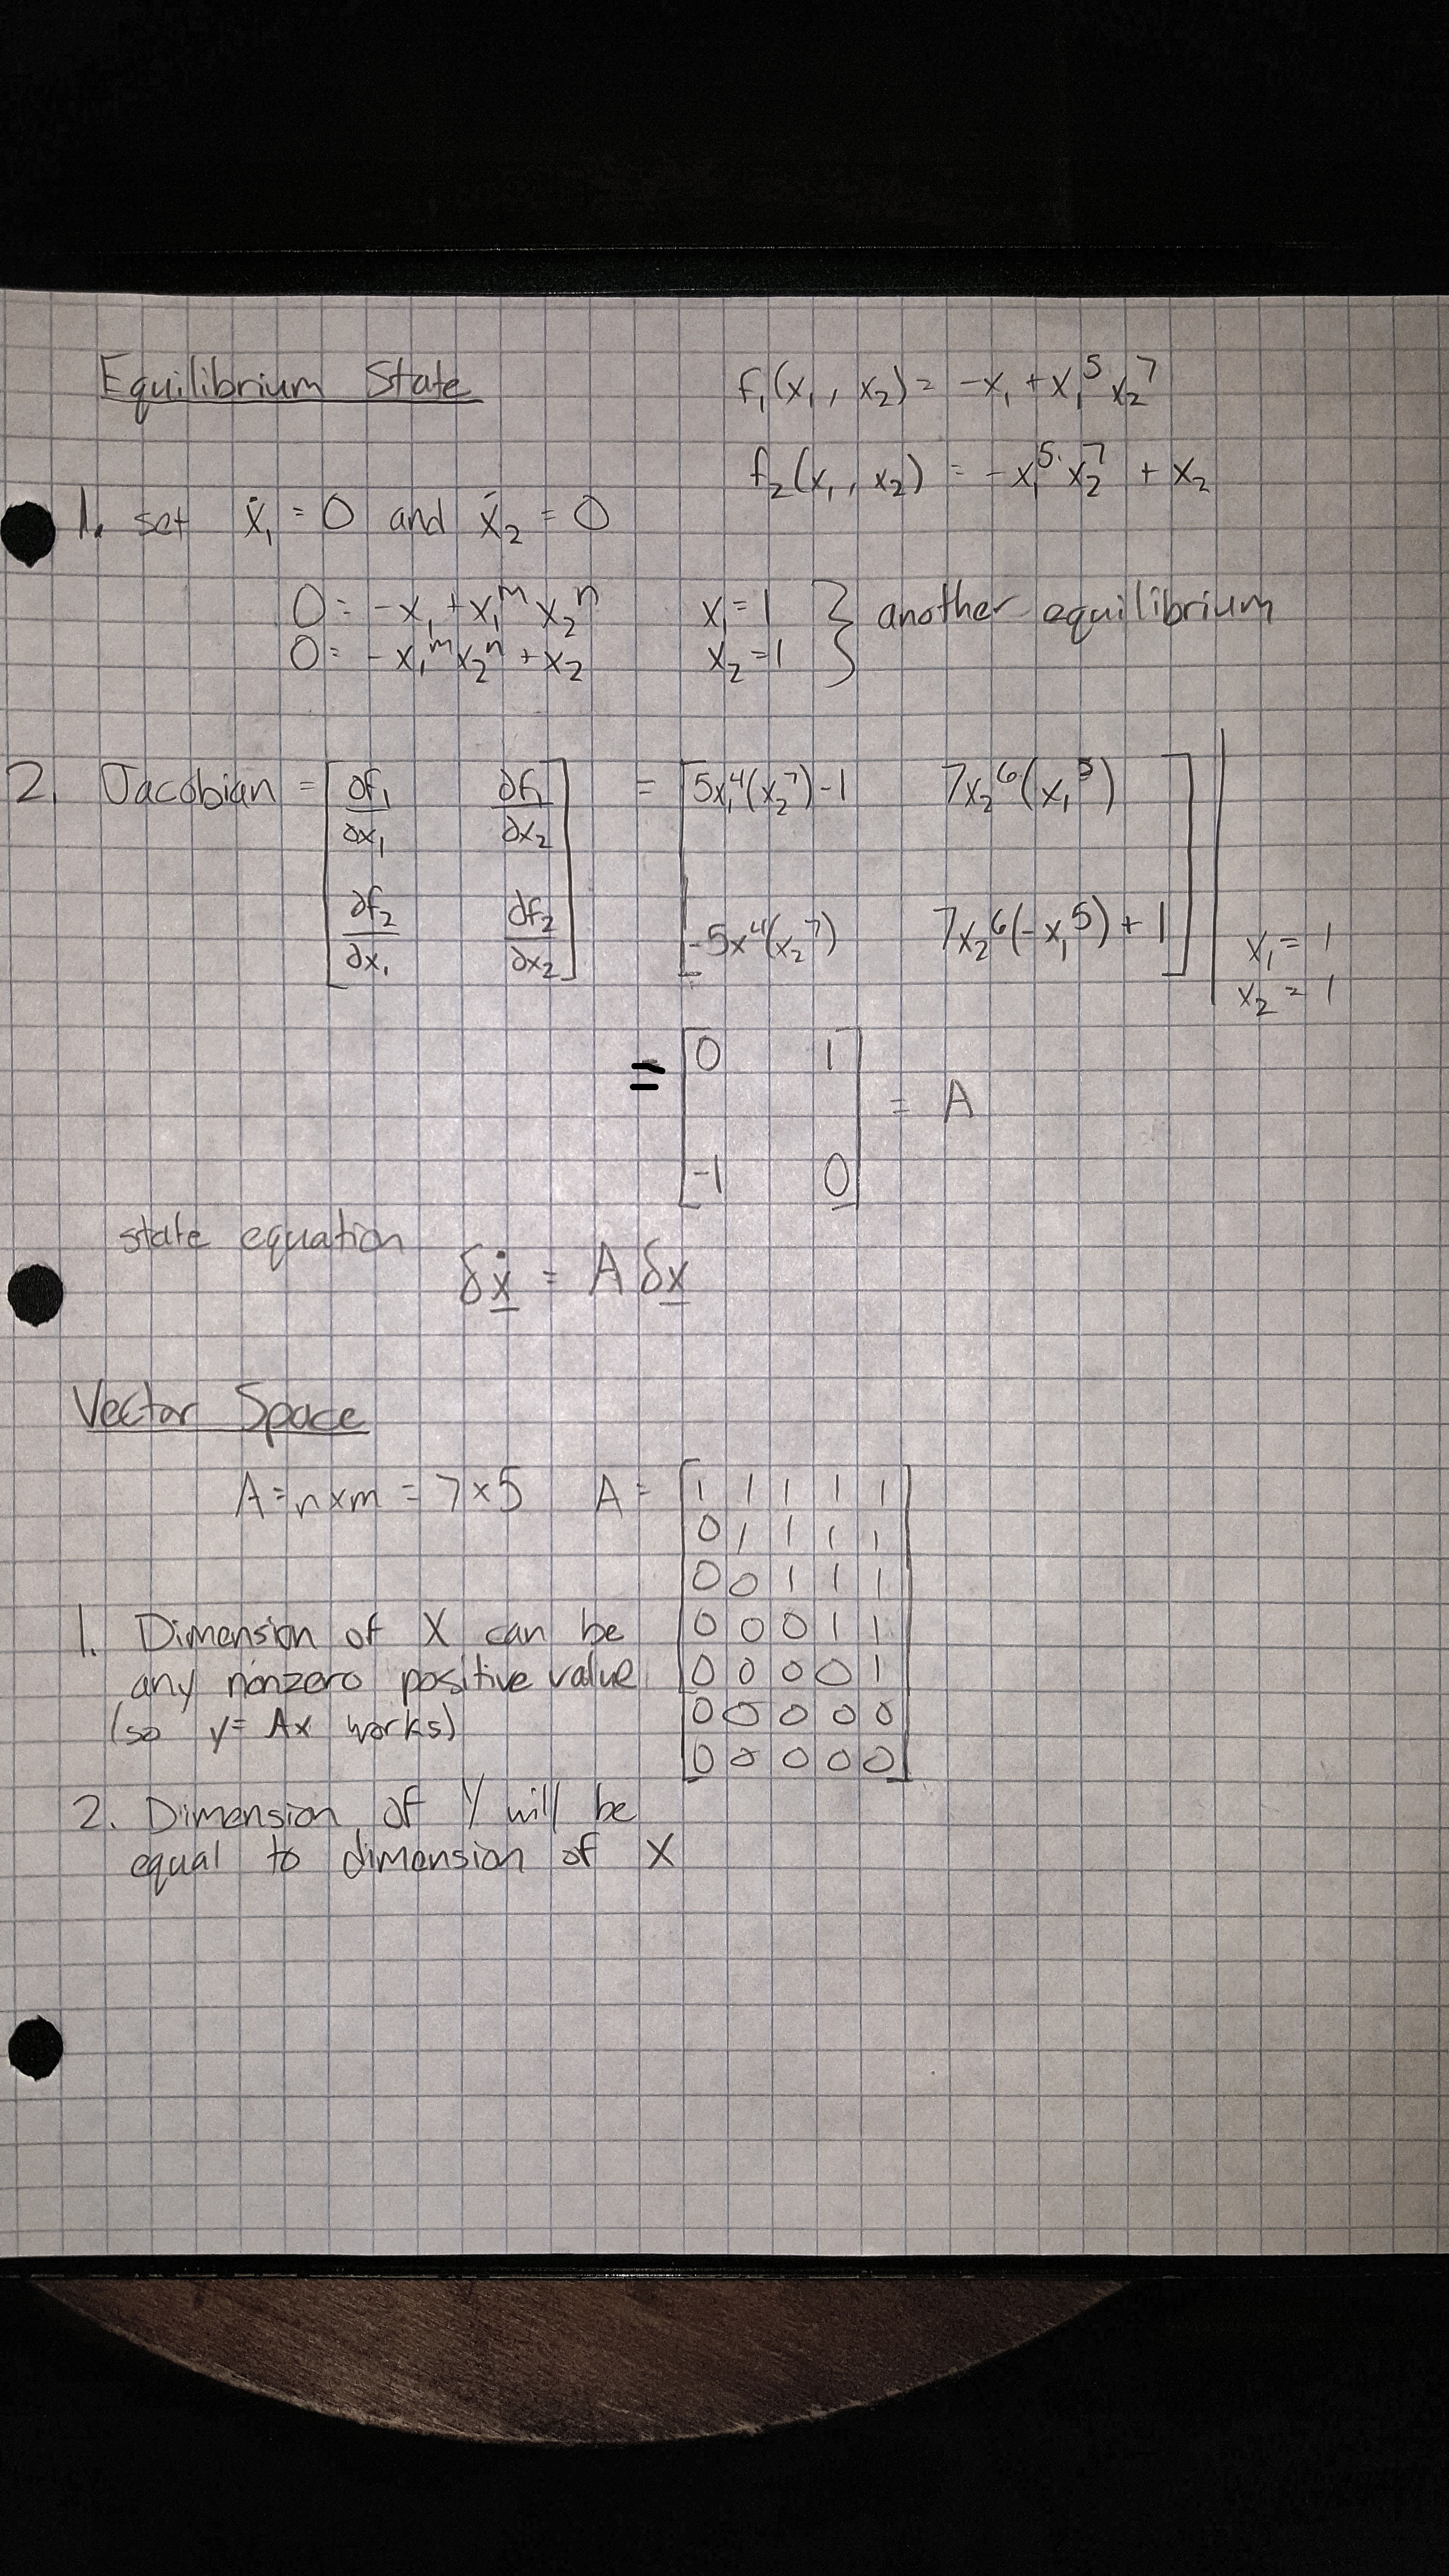 Equilibrium State
f₁(x₁, x₂) = -x₁ + x₁⁵ x₂⁷
f₂(x₁, x₂) = -x₁⁵ x₂⁷ + x₂
1. set ẋ₁ = 0 and ẋ₂ = 0
0 = -x₁ + x₁ᵐ x₂ⁿ x₁ = 1 } another equilibrium
0 = -x₁ᵐ x₂ⁿ + x₂ x₂ = 1
2. Jacobian = [ ∂f₁/∂x₁ ∂f₁/∂x₂ ] = [ 5x₁⁴(x₂⁷)-1 7x₂⁶(x₁⁵) ]
[ ∂f₂/∂x₁ ∂f₂/∂x₂ ] [ -5x⁴(x₂⁷) 7x₂⁶(-x₁⁵)+1 ] | x₁ = 1
x₂ = 1
= [ 0 1 ] = A
[ -1 0 ]
state equation
δẋ = A δx
Vector Space
A = n x m = 7 x 5 A = [ 1 1 1 1 1
0 1 1 1 1
0 0 1 1 1
0 0 0 1 1
0 0 0 0 1
0 0 0 0 0
0 0 0 0 0 ]
1. Dimension of X can be
any nonzero positive value
(so y = Ax works)
2. Dimension of Y will be
equal to dimension of X